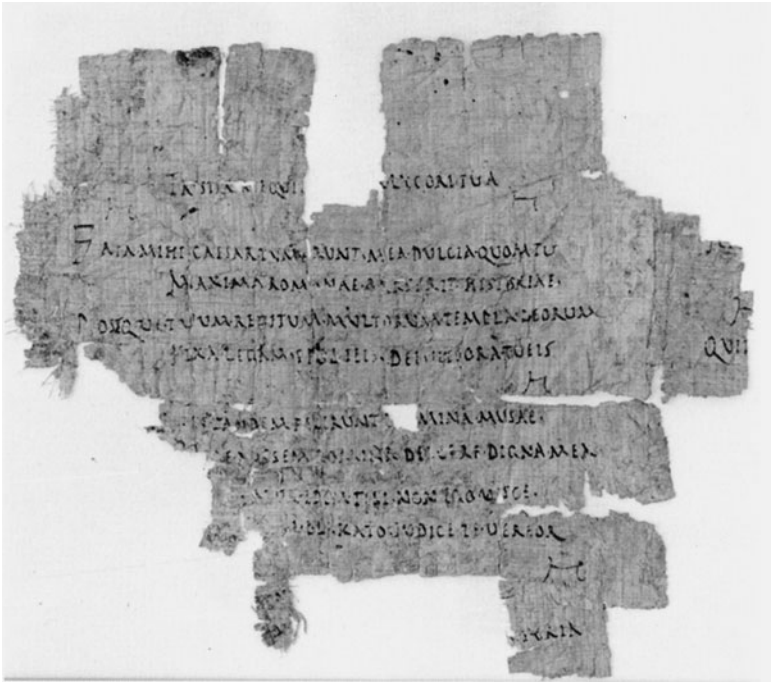 TRISTIA·NEQVI A·LYCORI·TVA
FATA·MIHI·CAESAR·TVM·ERVNT·MEA·DVLCIA·QVOM·TV
MAXIMA·ROMANAE·PARS·ERIT·HISTORIAE·
POSTQVE·TVVM·REDITVM·MVLTORVM·TEMPLA·DEORVM
FIXA·LEGAM·SPOLIEIS·DEIVITIORA·TVEIS
TANDEM·FECERVNT MINA·MVSAE·
POSSEM·DOMINA·DEICERE·DIGNA·MEA
TIBI·NON·EGO·VISCE·
KATO·IVDICE·TE·VEREOR
TYRIA
QVI